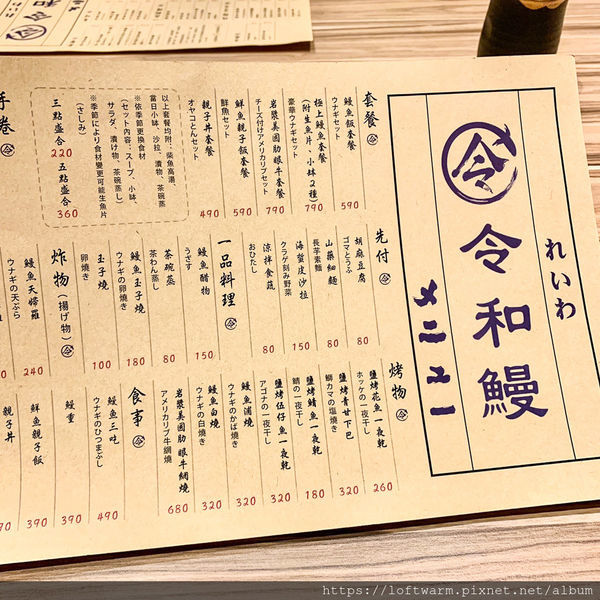 令
令和鰻
れいわ
メニュー
套餐
鰻魚飯套餐
ウナギセット
590
極上鰻魚套餐
(附生魚片、小缽2種)
豪華ウナギセット
790
岩漿美國肋眼牛套餐
チーズ付けアメリカリブセット
790
鮮魚親子飯套餐
鮮魚セット
590
親子丼套餐
オヤコとんセット
490
以上套餐均附:柴魚高湯、
當日小缽、沙拉、漬物、茶碗蒸
※依季節更換食材
(セット内容:スープ、小鉢、
サラダ、漬け物、茶碗蒸し)
※季節により食材變更可能生魚片
(さしみ)
三點盛合 220
五點盛合 360
手卷
先付
胡麻豆腐
ゴマとうふ
80
山藥細麵
長芋素麵
80
海蜇皮沙拉
クラゲ刻み野菜
150
涼拌食蔬
おひたし
80
一品料理
鰻魚醋物
うざす
150
茶碗蒸
茶わん蒸し
80
鰻魚玉子燒
ウナギの卵焼き
180
玉子燒
卵焼き
100
炸物(揚げ物)
鰻魚天婦羅
ウナギの天ぷら
240
烤物
鹽烤花魚一夜乾
ホッケの一夜干し
260
鹽烤青甘下巴
鰤カマの塩焼き
320
鹽烤鯖魚一夜乾
鯖の一夜干し
180
鹽烤伍仔魚一夜乾
アゴナの一夜干し
320
鰻魚蒲燒
ウナギのかば焼き
320
鰻魚白燒
ウナギの白焼き
320
岩漿美國肋眼牛綱燒
アメリカリブ牛綱焼
680
食事
鰻魚三吃
ウナギのひつまぶし
490
鰻重
390
鮮魚親子飯
390
親子丼
https://loftwarm.pixnet.net/album